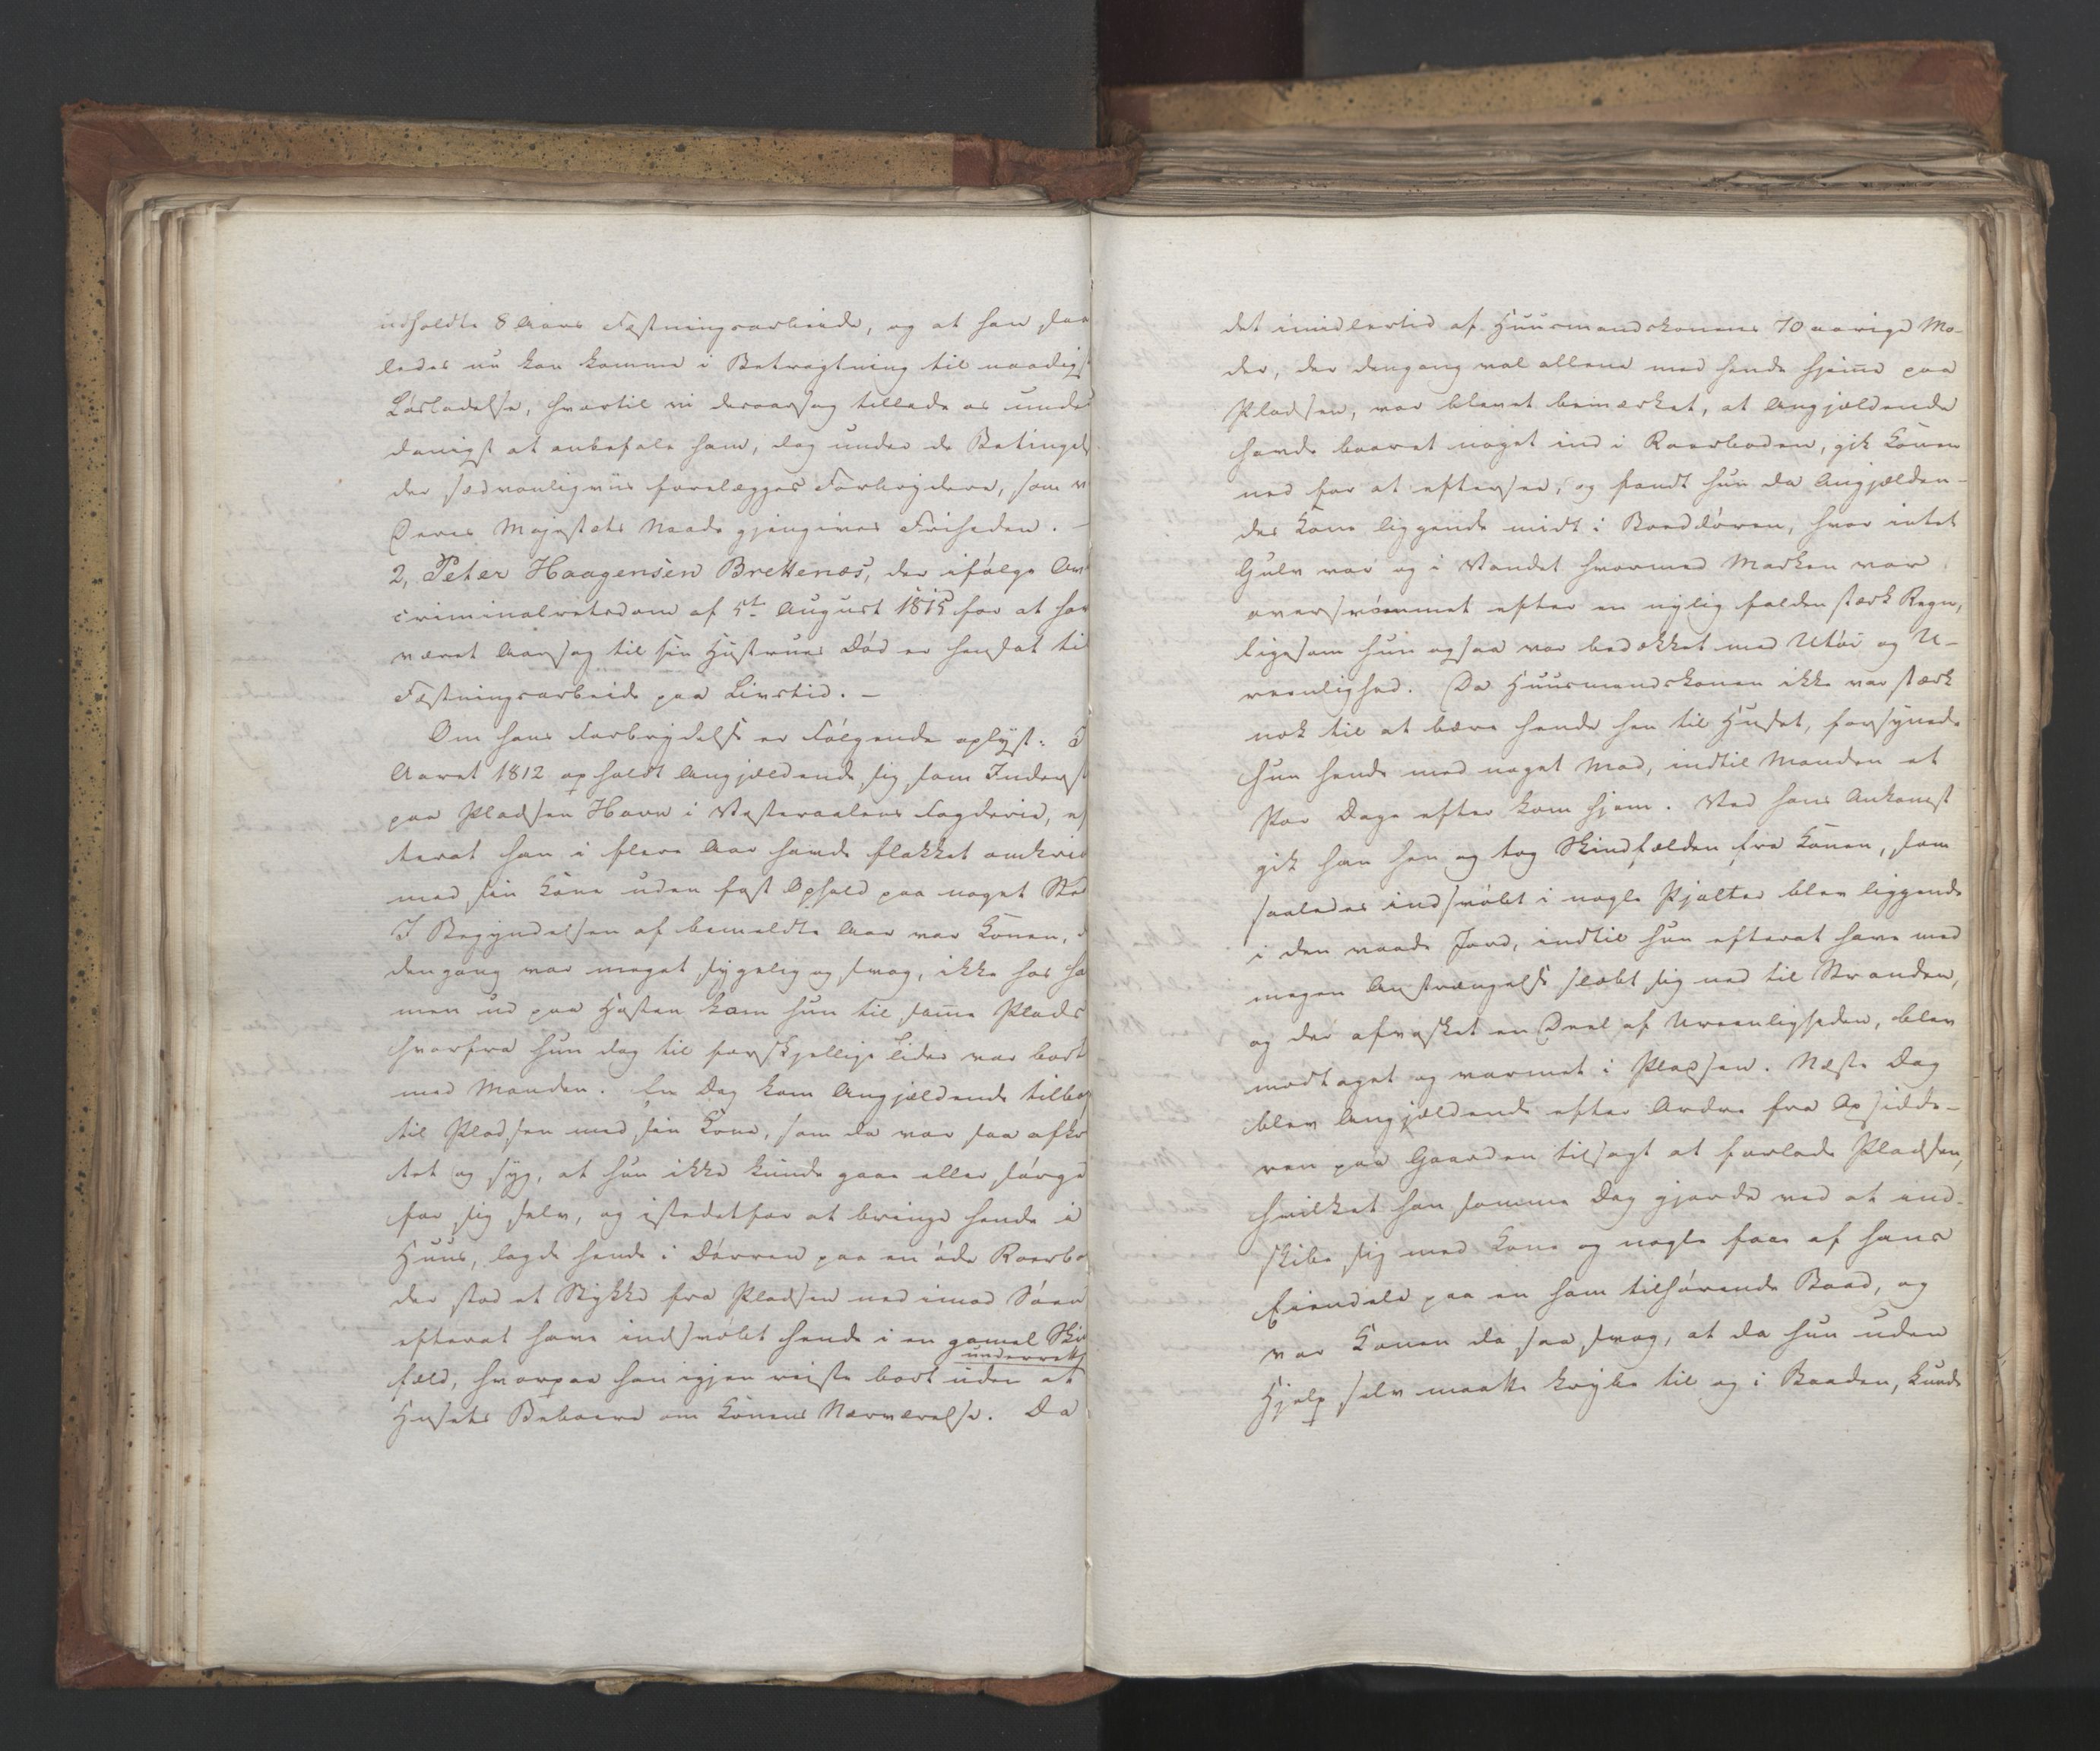 udholdte 8 Aars Fæstningsarbeide, og at han saa
ledes nu kan komme i Betragtning til naadigst
Løsladelse, hvortil vi deraarsag tillade os under
danigst at anbefale ham, dog under de Betingel
der sædvanligviis forelægges Forbrydere, som v
Deres Majestets Naade gjengives Friheden. -
2, Peter Haagensen Brettenæs, der ifølge Over
criminalretsdom af 5te August 1815 for at have
været Aarsag til sin Hustrues Død er hensat til
Fæstningsarbeide paa Livstid. -
Om hans Forbrydelse er Følgende oplyst: I
Aaret 1812 opholdt Angjældende sig som Inderst
paa Pladsen Havn i Vesteraalens Fogderie, ef
terat han i flere Aar havde flakket omkring
med sin Kone uden fast Ophold paa noget Sted
I Begyndelsen af bemeldte Aar var Konen, d
dengang var meget sygelig og svag, ikke hos ha
men ud paa Høsten kom hun til samme Plads
hvorfra hun dog til forskjellige Tider var bort
med Manden. En Dag kom Angjældende tilbage
til Pladsen med sin Kone, som da var saa afkræf
tet og syg, at hun ikke kunde gaae eller sørge
for sig selv, og istedetfor at bringe hende i
Huus, lagde hende i Dørren paa en øde Roerbo
der stod et Stykke fra Pladsen ned imod Søen
efterat have indsvøbt hende i en gamel Skin
fæld, hvorpaa han igjen reiste bort uden at underrette
Husets Beboere om Konens Nærværelse. Da
det imidlertid af Huusmandskonens 70 aarige Mo-
der, der dengang var allene med hende hjemme paa
Pladsen, var blevet bemærket, at Angjældende
havde baaret noget ind i Roerboden, gik Konen
ned for at eftersee, og fandt hun da Angjælden-
des Kone liggende midt i Boddøren, hvor intet
Gulv var og i Vandet hvormed Marken var
oversvømmet efter en nylig falden stærk Regn,
ligesom hun ogsaa var bedækket med Utøi og U-
reenlighed. Da Huusmandskonen ikke var stærk
nok til at bære hende hen til Huset, forsynede
hun hende med noget Mad, indtil Manden et
Par Dage efter kom hjem. Ved hans Ankomst
gik han hen og tog Skindfælden fra Konen, som
saaledes indsvøbt i nogle Pjalter blev liggende
i den vaade Jord, indtil hun efterat have med
megen Anstrængelse slæbt sig ned til Stranden,
og der afvasket en Deel af Ureenligheden, blev
modtaget og varmet i Pladsen. Næste Dag
blev Angjældende efter Ordre fra Opsidde-
ren paa Gaarden tilsagt at forlade Pladsen,
hvilket han samme Dag gjorde ved at ind-
skibe sig med Kone og nogle faae af hans
Eiendele paa en ham tilhørende Baad, og
var Konen da saa svag, at da hun uden
Hjelp selv maatte krybe til og i Baaden, kunde